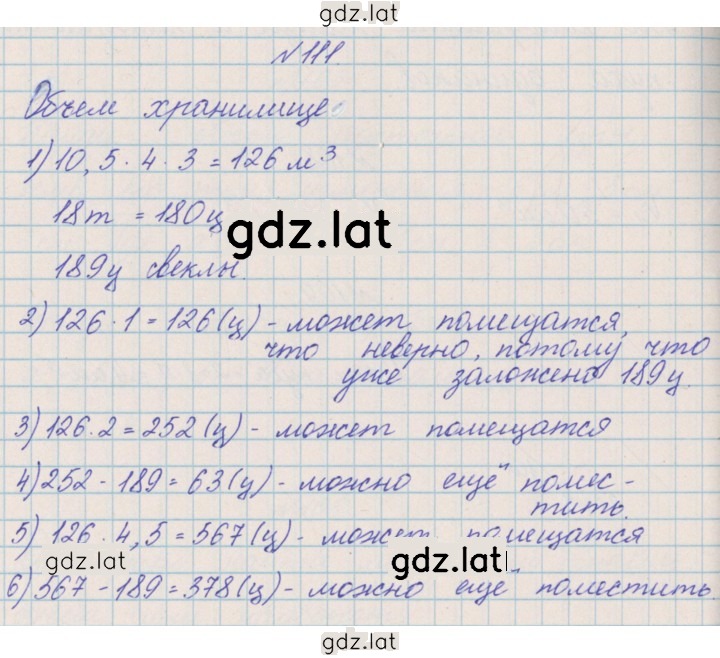 gdz.lat
№111.
Объем хранилище
1) 10,5 · 4 · 3 = 126 м³
18т = 180ц
gdz.lat
189ц свеклы.
2) 126 · 1 = 126 (ц) - может помещатся,
что неверно, потому что
уже заложено 189ц.
3) 126 · 2 = 252 (ц) - может помещатся
4) 252 - 189 = 63 (ц) - можно ещё помес-
тить.
5) 126 · 4,5 = 567 (ц) - может помещатся
gdz.lat gdz.lat
6) 567 - 189 = 378 (ц) - можно ещё поместить.
gdz.lat